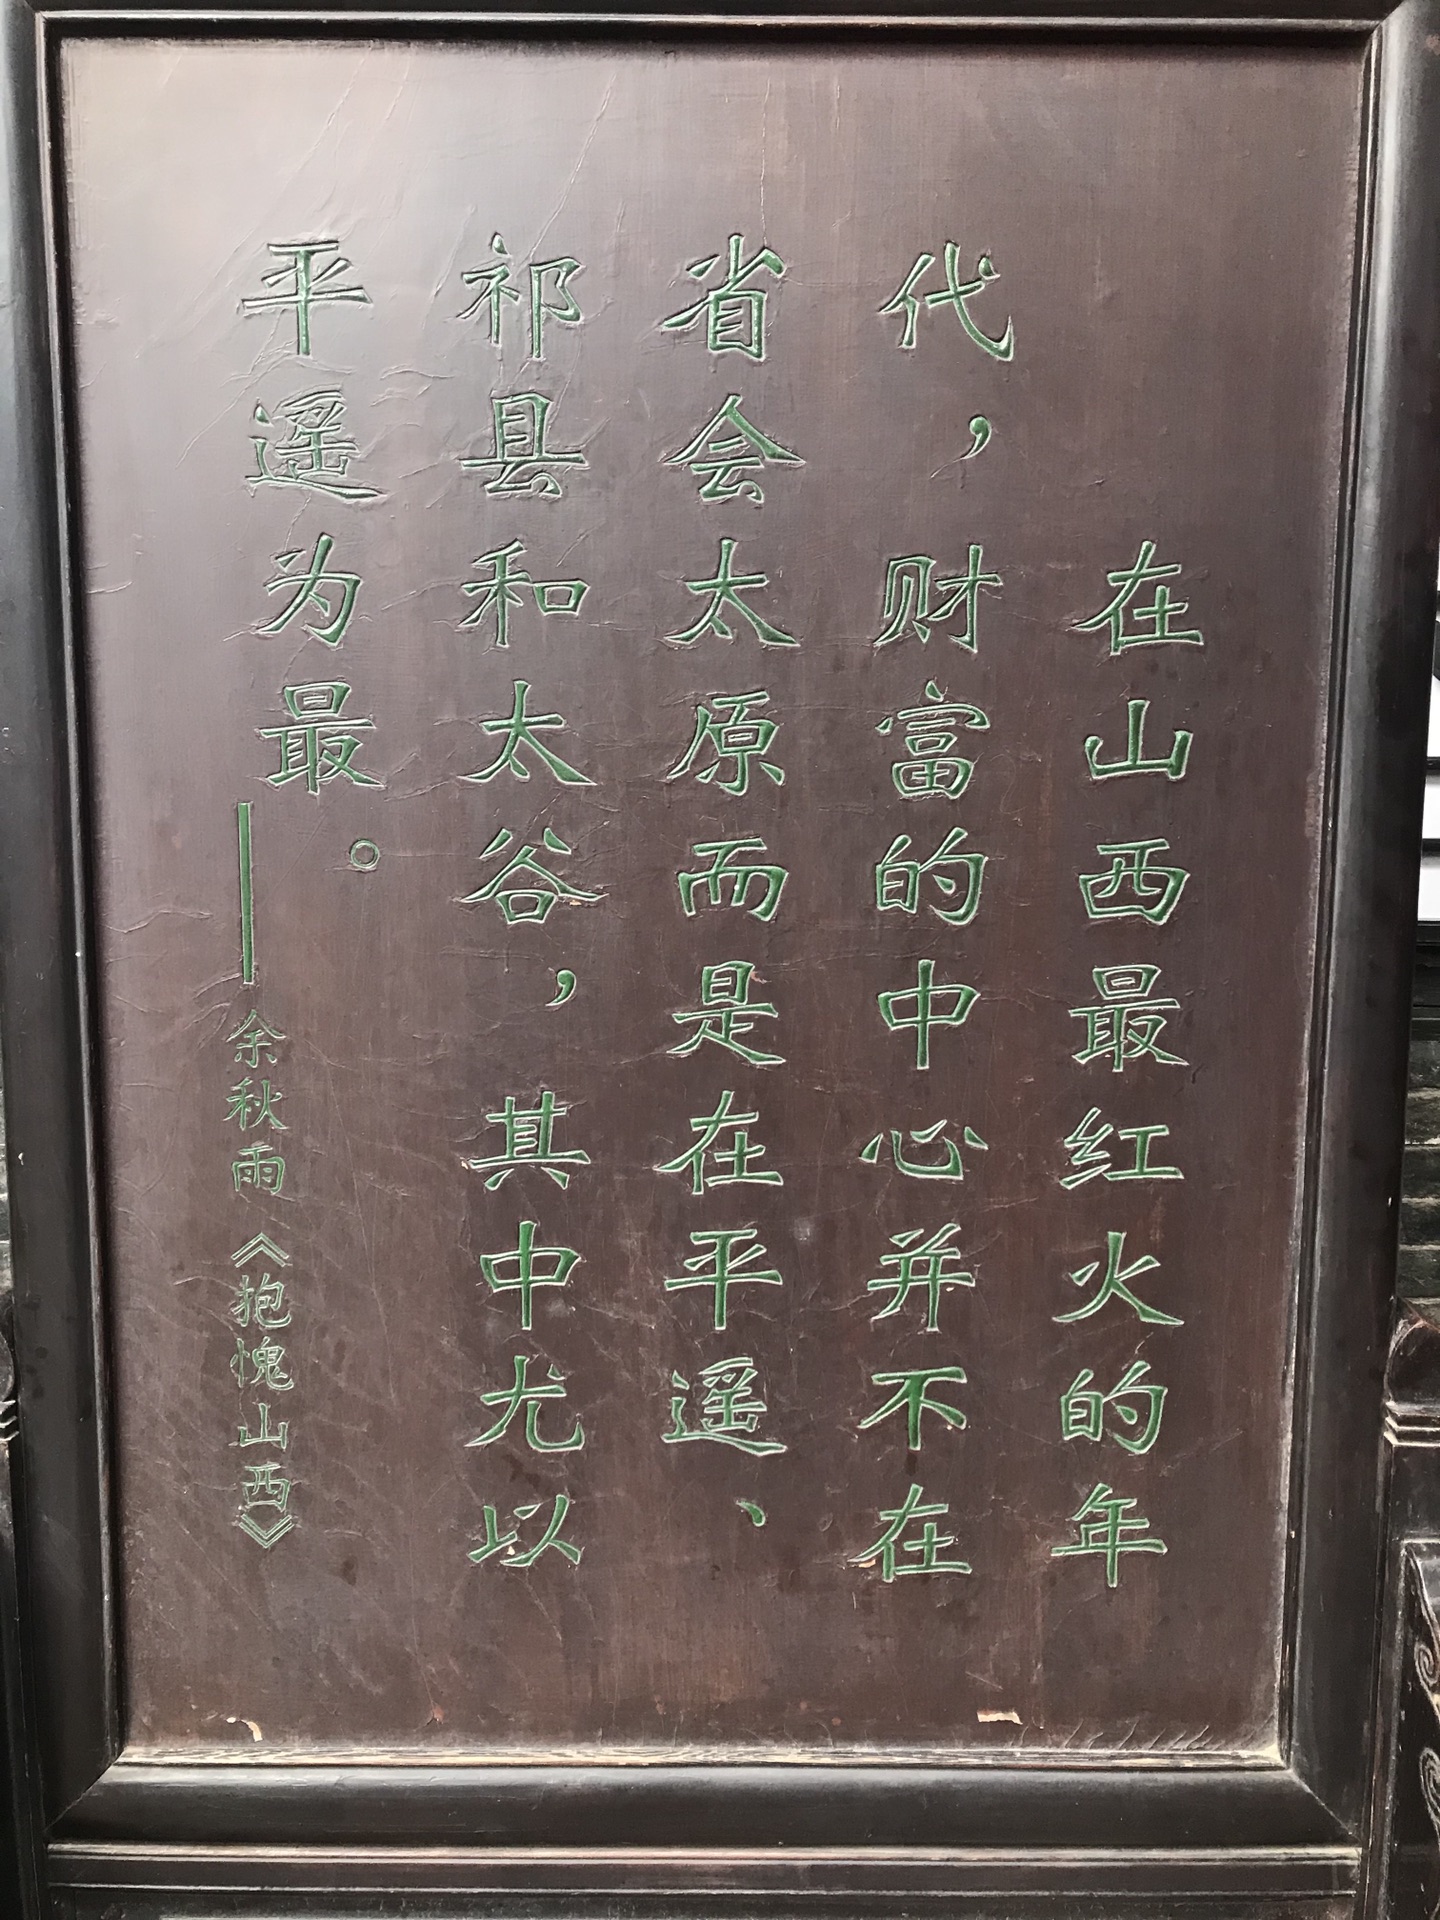 在山西最红火的年
代，财富的中心并不在
省会太原而是在平遥、
祁县和太谷，其中尤以
平遥为最。
——余秋雨《抱愧山西》